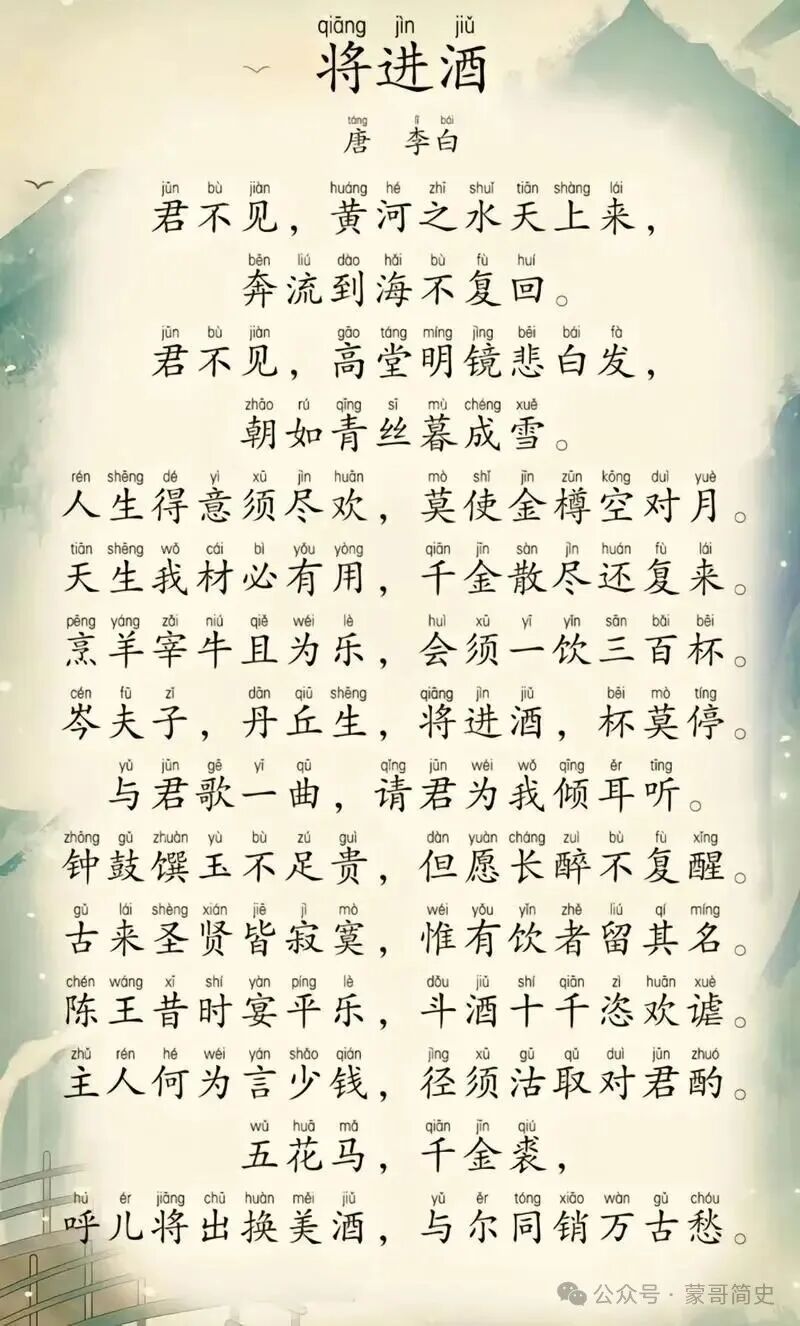 qiāng jìn jiǔ
将进酒
táng lǐ bái
唐 李白
jūn bù jiàn huáng hé zhī shuǐ tiān shàng lái
君不见，黄河之水天上来，
bēn liú dào hǎi bù fù huí
奔流到海不复回。
jūn bù jiàn gāo táng míng jìng bēi bái fà
君不见，高堂明镜悲白发，
zhāo rú qīng sī mù chéng xuě
朝如青丝暮成雪。
rén shēng dé yì xū jìn huān mò shǐ jīn zūn kōng duì yuè
人生得意须尽欢，莫使金樽空对月。
tiān shēng wǒ cái bì yǒu yòng qiān jīn sàn jìn huán fù lái
天生我材必有用，千金散尽还复来。
pēng yáng zǎi niú qiě wéi lè huì xū yī yǐn sān bǎi bēi
烹羊宰牛且为乐，会须一饮三百杯。
cén fū zǐ dān qiū shēng qiāng jìn jiǔ bēi mò tíng
岑夫子，丹丘生，将进酒，杯莫停。
yǔ jūn gē yī qǔ qǐng jūn wèi wǒ qīng ěr tīng
与君歌一曲，请君为我倾耳听。
zhōng gǔ zhuàn yù bù zú guì dàn yuàn cháng zuì bù fù xǐng
钟鼓馔玉不足贵，但愿长醉不复醒。
gǔ lái shèng xián jiē jì mò wéi yǒu yǐn zhě liú qí míng
古来圣贤皆寂寞，惟有饮者留其名。
chén wáng xī shí yàn píng lè dǒu jiǔ shí qiān zì huān xuè
陈王昔时宴平乐，斗酒十千恣欢谑。
zhǔ rén hé wéi yán shǎo qián jìng xū gū qǔ duì jūn zhuó
主人何为言少钱，径须沽取对君酌。
wǔ huā mǎ qiān jīn qiú
五花马，千金裘，
hū ér jiāng chū huàn měi jiǔ yǔ ěr tóng xiāo wàn gǔ chóu
呼儿将出换美酒，与尔同销万古愁。
公众号·蒙哥简史